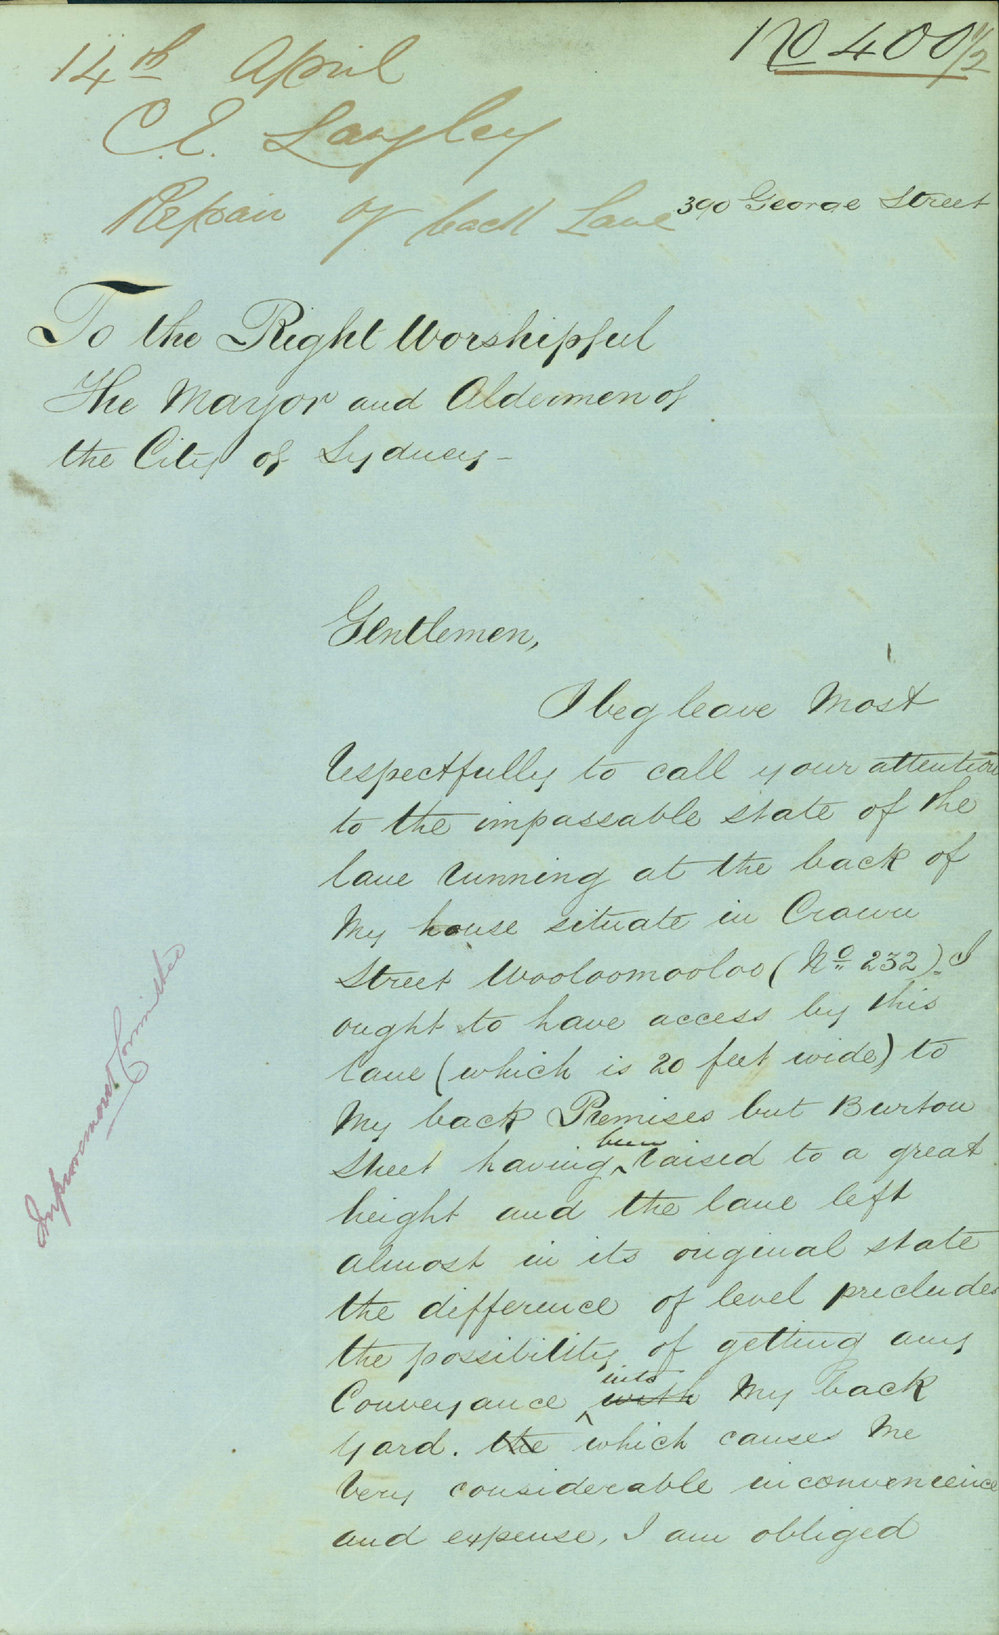 No 400 1/2
14th April
C. E. Langley
Repair of back Lane
390 George Street
To the Right Worshipful
The Mayor and Aldermen of
the City of Sydney -
Gentlemen,
I beg leave Most
respectfully to call your attention
to the impassable state of the
lane running at the back of
My house situate in Crown
Street Wooloomooloo (No 232). I
ought to have access by this
lane (which is 20 feet wide) to
My back Premises but Burton
Street having been raised to a great
height and the lane left
almost in its original state
the difference of level precludes
the possibility of getting any
Conveyance with into My back
yard. the which causes Me
Very considerable inconvenience
and expense, I am obliged
Improvement Committee